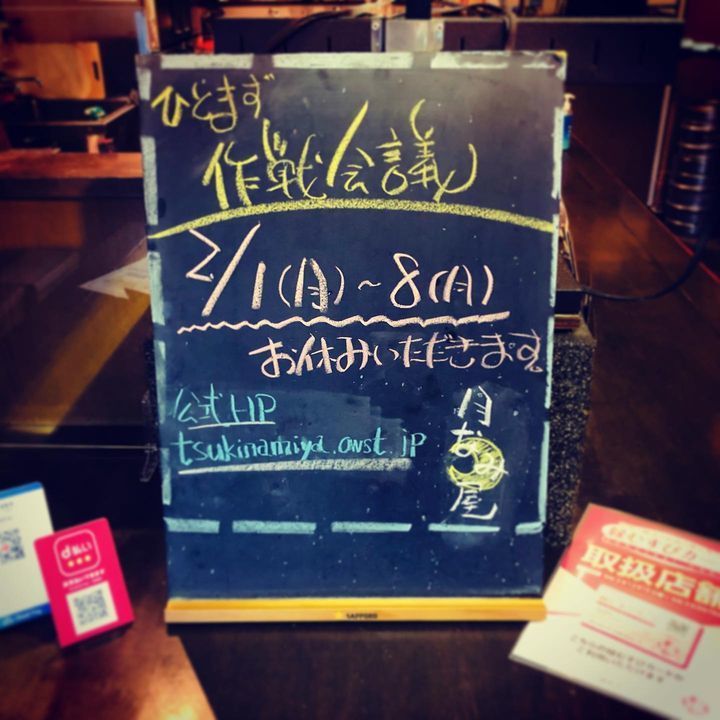 ひとまず
作戦会議
2/1(月)~8(月)
お休みいただきます。
公式HP
tsukinamiya.owst.jp
月なみ屋
SAPPORO
d払い
取扱店舗